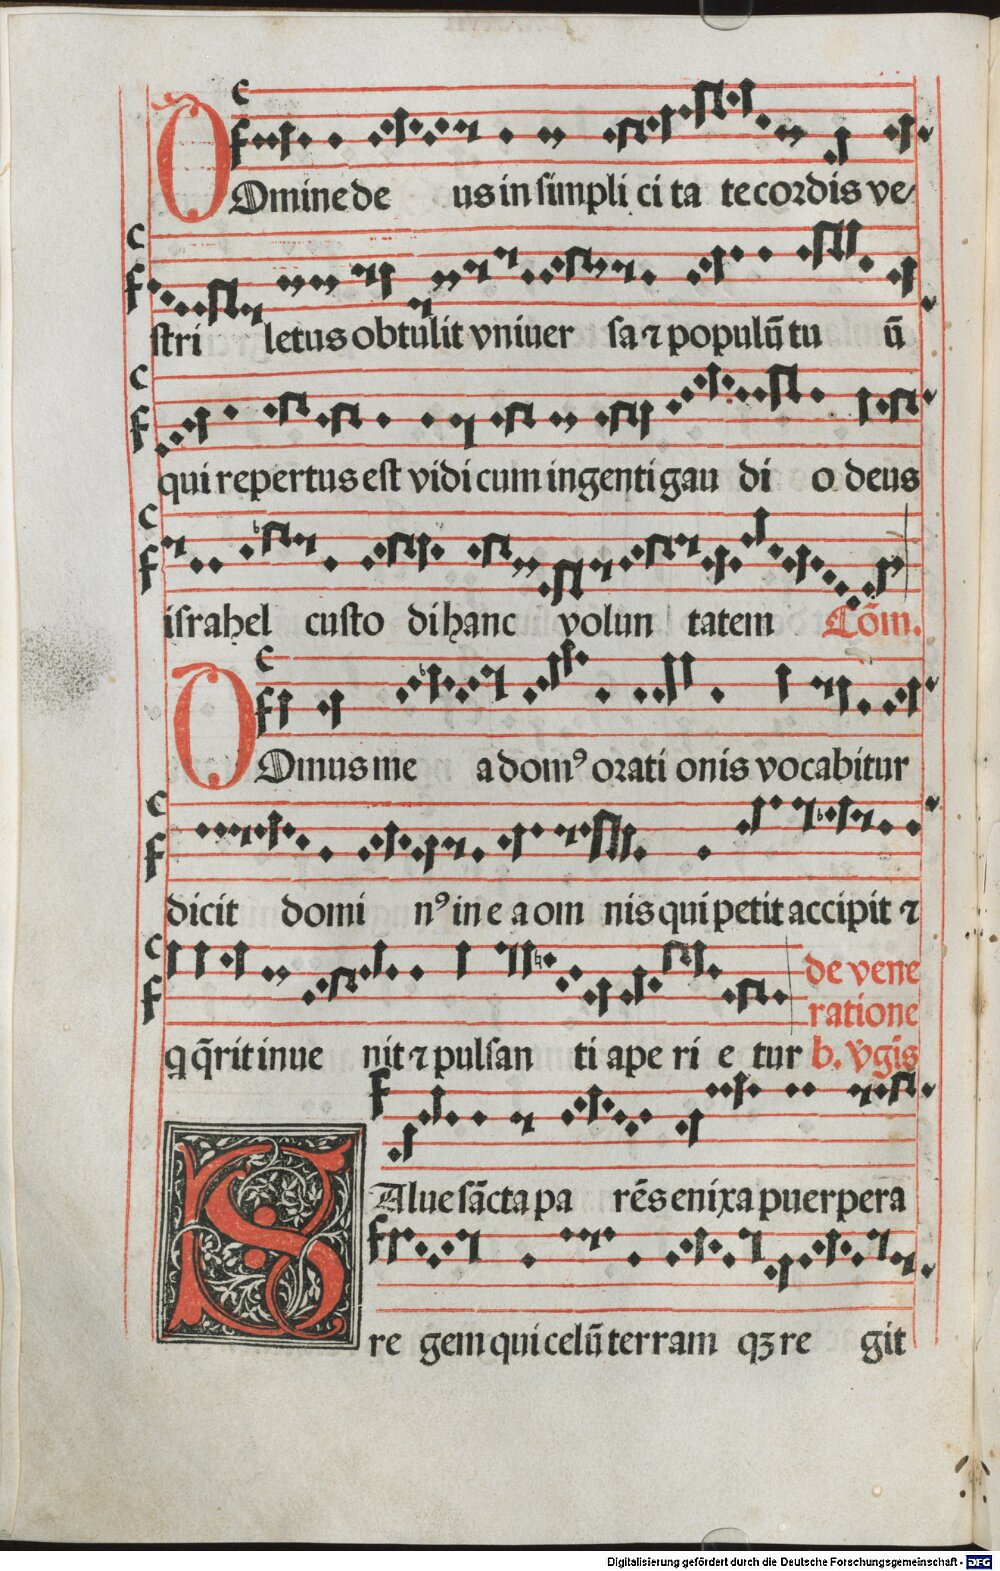 Domine de us in simpli ci ta te cordis ve
stri letus obtulit vniuer sa ⁊ populū tu ū
qui repertus est vidi cum ingenti gau di o deus
israhel custo di hanc volun tatem Cōm.
Domus me a domꝰ orati onis vocabitur
dicit domi nꝰ in e a om nis qui petit accipit ⁊
q q̄rit inue nit ⁊ pulsan ti ape ri e tur
de vene
ratione
b. v̄gīs
Salue sācta pa rēs enixa puerpera
re gem qui celū terram qꝫ re git
Digitalisierung gefördert durch die Deutsche Forschungsgemeinschaft - DFG